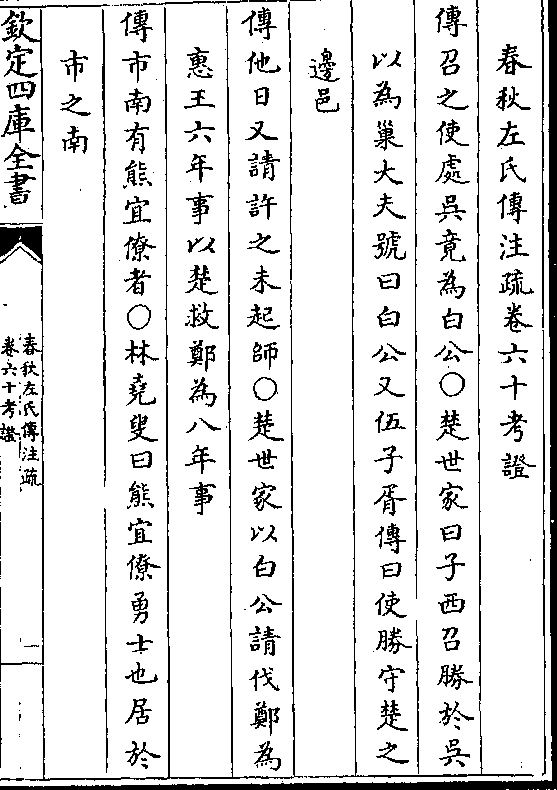 春秋左氏傳注疏卷六十考證
傳召之使處吳竟為白公○楚世家曰子西召勝於吳
以為巢大夫號曰白公又伍子胥傳曰使勝守楚之
邊邑
傳他日又請許之未起師○楚世家以白公請伐鄭為
惠王六年事以楚救鄭為八年事
傳市南有熊宜僚者○林堯叟曰熊宜僚勇士也居於
市之南
欽定四庫全書
春秋左氏傳注疏
卷六十考證
一